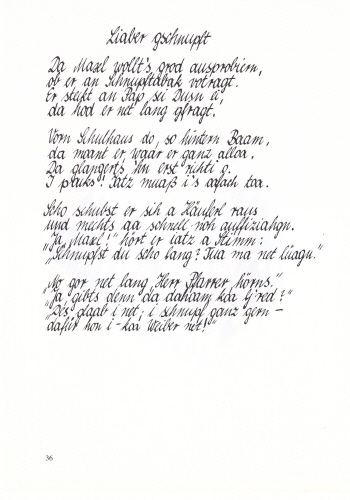 Liaber gschnupft
Da Maxl wollt's grod ausprobiern,
ob er an Schnupftabak votragt.
Er stakt an Pap sei Dusn ei,
da hod er net lang gfragt.
Vorn Schulhaus do, so hintern Baam,
da moant er, waar er ganz alloa.
Da glangert's 'hn erst richti o.
I packs! Iatz muaß i's oafach toa.
Scho schubst er sich a Häuferl raus
und mechts aa schnell noh auffiziahgn.
"Ja, Maxl!" hört er iatz a Stimm:
"Schnupfst du scho lang? Tua ma net lüagn."
"No gor net lang, Herr Pfarrer, hörns."
"Ja, gibts denn da dahoam koa G'red?"
"Dös glaab i net; i schnupf ganz gern –
dafür hon i – koa Weiber net!"
36